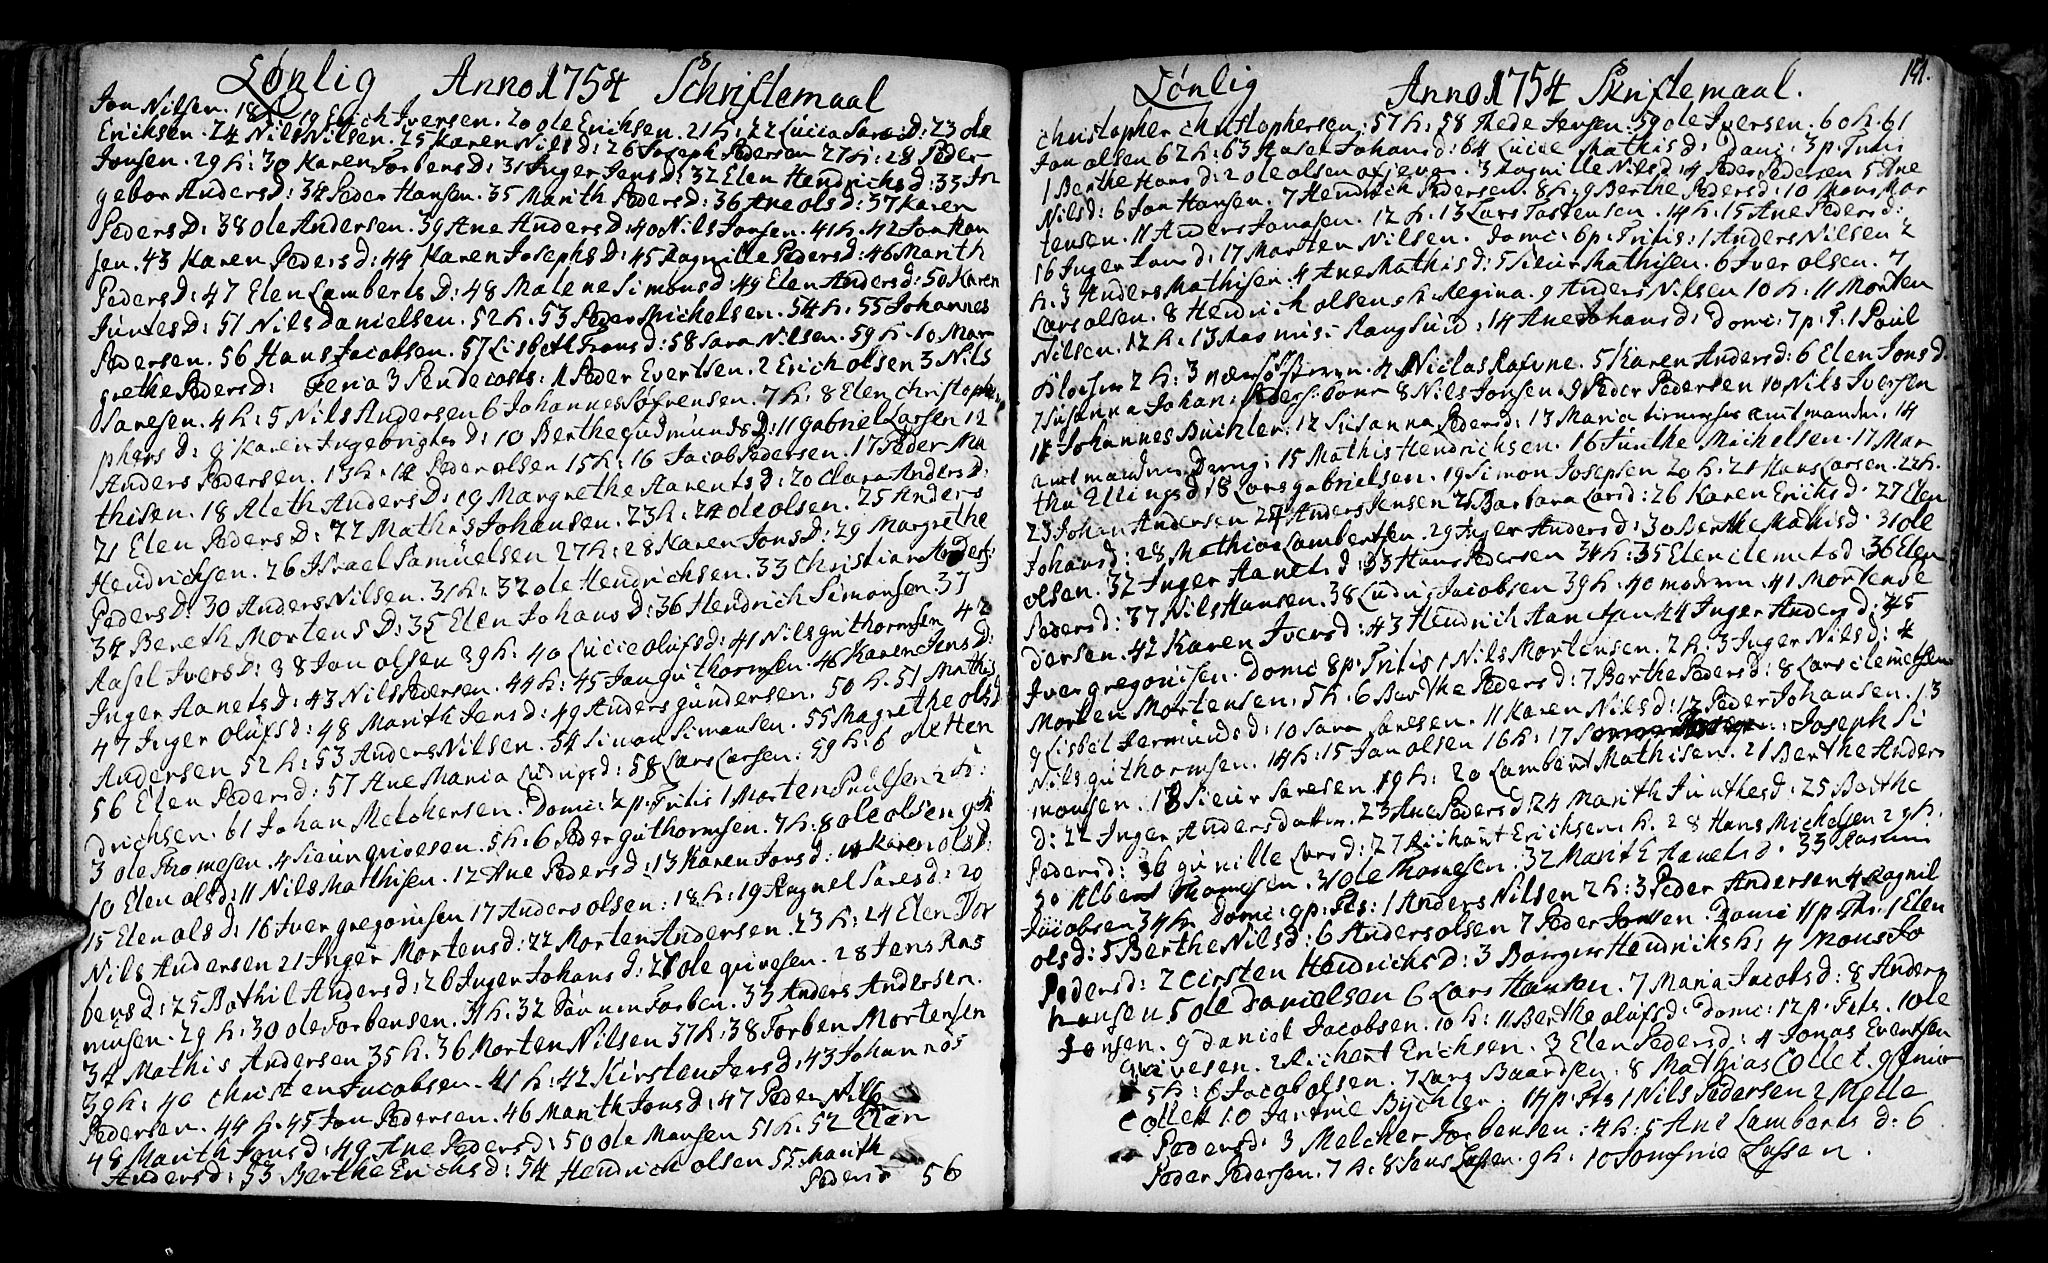 Lønlig Anno 1754 Schriftemaal
Jon Nilsen. 18 19 Erich Iversen. 20 ole Erichsen. 21 h: 22 Lucia Sares D: 23 ole
Ericksen. 24 Nils Nilsen. 25 Karen Nils d: 26 Joseph Pedersen 27 h: 28 Peder
Jonsen. 29 h: 30 Karen Torbens D: 31 Inger Jens D: 32 Elen Hendrichs d: 33 In
gebor Anders D: 34 Peder Hansen. 35 Marith Peders D: 36 Ane ols D: 37 Karen
Peders D: 38 ole Andersen. 39 Ane Anders D: 40 Nils Jonsen. 41 h. 42 Jon Han
sen. 43 Karen Peders d: 44 Karen Josephs D: 45 Ragnille Peders d: 46 Marith
Peders D: 47 Elen Lamberts D: 48 Malene Simons d: 49 Elen Anders d: 50 Karen
Juntes D: 51 Nils Danielsen. 52 h. 53 Peder Michelsen. 54 h. 55 Johannes
Pedersen. 56 Hans Jacobsen. 57 Lisbeth Frans d: 58 Sara Nilsen. 59 h. 10 Mar
grethe Peders d: Feria 3 Pendecosts: 1 Peder Evertsen. 2 Erich olsen 3 Nils
Saresen. 4 h: 5 Nils Andersen 6 Johannes Søfrensen. 7 h: 8 Elen Christoph
phers d: 9 Karen Ingebrigts D: 10 Berthe gudmunds D: 11 gabriel Larsen 12
Anders Pedersen. 13 h: 14 Peder olsen 15 h: 16 Jacob Pedersen. 17 Peder Ma
thisen. 18 Aleth Anders D: 19 Margrethe Aarents d: 20 Clara Anders D:
21 Elen Peders D: 22 Mathis Johansen. 23 h: 24 ole olsen. 25 Anders
Hendrichsen. 26 Israel Samuelsen 27 h: 28 Karen Jons D: 29 Margrethe
Peders D: 30 Anders Nilsen. 31 h: 32 ole Hendrichsen. 33 Christian
34 Bereth Mortens D: 35 Elen Johans D: 36 Hendrich Simonsen. 37
Aasel Ivers D: 38 Jon olsen 39 h: 40 Lucie olufs d: 41 Nils guthormsen 42
Inger Aanets D: 43 Nils Pedersen. 44 h: 45 Jon guthormsen. 46 Karen Jens D:
47 Inger olufs d: 48 Marith Jens d: 49 Anders gundersen. 50 h. 51 Mathis
Andersen 52 h: 53 Anders Nilsen. 54 Simon Simonsen. 55 Magrethe ols d
56 Elen Peders d: 57 Ane Maria Ludvigs d: 58 Lars Larsen: 59 h: 6 ole Hen
drichsen. 61 Johan Melchersen. Domi: 2 p: Tritis 1 Morten Poulsen 2 h:
3 ole Thomesen. 4 Sieur grivesen. 5 h: 6 Peder guthormsen. 7 h. 8 ole olsen 9 h
10 Elen ols d: 11 Nils Mathisen. 12 Ane Peders d: 13 Karen Jons d: 14 Karen ols d:
15 Elen ols d: 16 Iver gregorisen 17 Anders olsen: 18 h: 19 Ragnel Sares d: 20
Nils Andersen 21 Inger Mortens d: 22 Morten Andersen. 23 h: 24 Elen Tor
bens D: 25 Bothil Anders d: 26 Inger Johans d: 27 ole grivesen. 28 Jens Ras
musen. 29 h: 30 ole Torbensen. 31 h: 32 Torben. 33 Anders Andersen.
34 Mathis Andersen 35 h. 36 Morten Nilsen 37 h: 38 Torben Mortensen
39 h: 40 Christen Jacobsen. 41 h: 42 Kirsten Jens d: 43 Johannes
Pedersen. 44 h. 45 Jon Pedersen. 46 Marith Jons d: 47 Peder Nils
48 Marith Jons d: 49 Ane Peders d: 50 ole Monsen 51 h: 52 Elen
Anders d: 53 Berthe Erichs d: 54 Hendrich olsen 55 Marith
Peders d 56
Lønlig Anno 1754 Skriftemaal. 191.
Christopher Christophersen: 57 h: 58 Thede Jensen. 59 ole Iversen. 60 h. 61
Jon olsen 62 h: 63 Aasel Johans d: 64 Lucie Mathis d: Domi: 3 p: Tritis
1 Berthe Hans d: 2 ole olsen 3 Ragnille Nils d: 4 Peder Pedersen 5 Ane
Nils d: 6 Jon Hansen. 7 Hendrich Pedersen. 8 h. 9 Berthe Peders d: 10 Mons Mor
tensen. 11 Anders Jonasen. 12 h. 13 Lars Tostensen. 14 h. 15 Ane Peders d:
16 Inger Jons d: 17 Morten Nilsen. Domi: 6 p: Tritis: 1 Anders Nilsen 2
h. 3 Anders Mathisen. 4 Ane Mathis d: 5 Sieur Mathisen. 6 Iver olsen. 7
Lars olsen. 8 Hendrich olsens h. Regina. 9 Anders Nilsen 10 h: 11 Morten
Nilsen. 12 h. 13 Rasmus 14 Ane Johans d: Domi: 7 p: T: 1 Poul
2 h: 3 4 Niclas 5 Karen Anders d: 6 Elen Jons d.
7 Susanna Johan: 8 Nils Jonsen. 9 Peder Pedersen 10 Nils Iversen
11 Johannes Buchler. 12 Susanna Peders d: 13 Maria 14
15 Mathis Hendrichsen. 16 Junthe Michelsen. 17 Mar
tha Ellings d: 18 Lars gabrielsen. 19 Simon Josepsen 20 h. 21 Hans Larsen. 22 h.
23 Johan Andersen 24 Anders Jensen 25 Barbara Lars d: 26 Karen Eriks d: 27 Elen
Johans d: 28 Mathias Lambertsen. 29 Inger Anders d: 30 Berthe Mathis d: 31 ole
olsen. 32 Inger Aanets d: 33 Hans Pedersen 34 h: 35 Elen clemets d: 36 Elen
Peders d: 37 Nils Hansen. 38 Ludvig Jacobsen 39 h: 40 41 Morten Pe
dersen. 42 Karen Ivers d: 43 Hendrich Aanetsen 44 Inger Anders d: 45
Iver gregorisen. Domi: 8 p: Tritis 1 Nils Mortensen. 2 h: 3 Inger Nils d: 4
Morten Mortensen. 5 h. 6 Berthe Peders d: 7 Berthe Peders d: 8 Lars clemetsen
9 Lisbet Jermunds d: 10 Sara Saresen. 11 Karen Nils d: 12 Peder Johansen. 13
Nils guthormsen. 14 h: 15 Jon olsen 16 h: 17 Joseph Si
monsen. 18 Sieur Saresen 19 h: 20 Lambert Mathisen. 21 Berthe Anders
d: 22 Inger Anders 23 Ane Peders d: 24 Marith Junthes d: 25 Berthe
Peders d: 26 gunille Lars d: 27 Richart Erichsen. h. 28 Hans Michelsen 29 h.
30 Albert Thomesen. 31 ole Thomesen. 32 Marit Aanets d: 33 Rasmus
Jacobsen 34 h. Domi: 9 p: Fts: 1 Anders Nilsen 2 h: 3 Peder Andersen 4 Ragnil
ols d: 5 Berthe Nils d: 6 Anders olsen 7 Peder Jonsen. Domi 11 p: Tts: 1 Elen
Peders d: 2 Cirsten Hendrichs D: 3 Hendrichs h: 4 Mons Jo
hansen 5 ole Danielsen 6 Lars Hansen. 7 Maria Jacobs d: 8 Anders
Jensen. 9 Daniel Jacobsen. 10 h: 11 Berthe olufs d: Domi: 12 p: Tts. 1 ole
grivesen. 2 Richert Erichsen. 3 Elen Peders d: 4 Jonas Evertsen
5 h: 6 Jacob olsen. 7 Lars Baardsen. 8 Mathias Collet. 9
Collett 10 Bychler. 14 p: Tts 1 Nils Pedersen 2 Mette
Peders d: 3 Melcher Torbensen: 4 h: 5 Ane Lamberts d: 6
Peder Pedersen. 7 h: 8 Jens Lassen. 9 h: 10 Lassen.